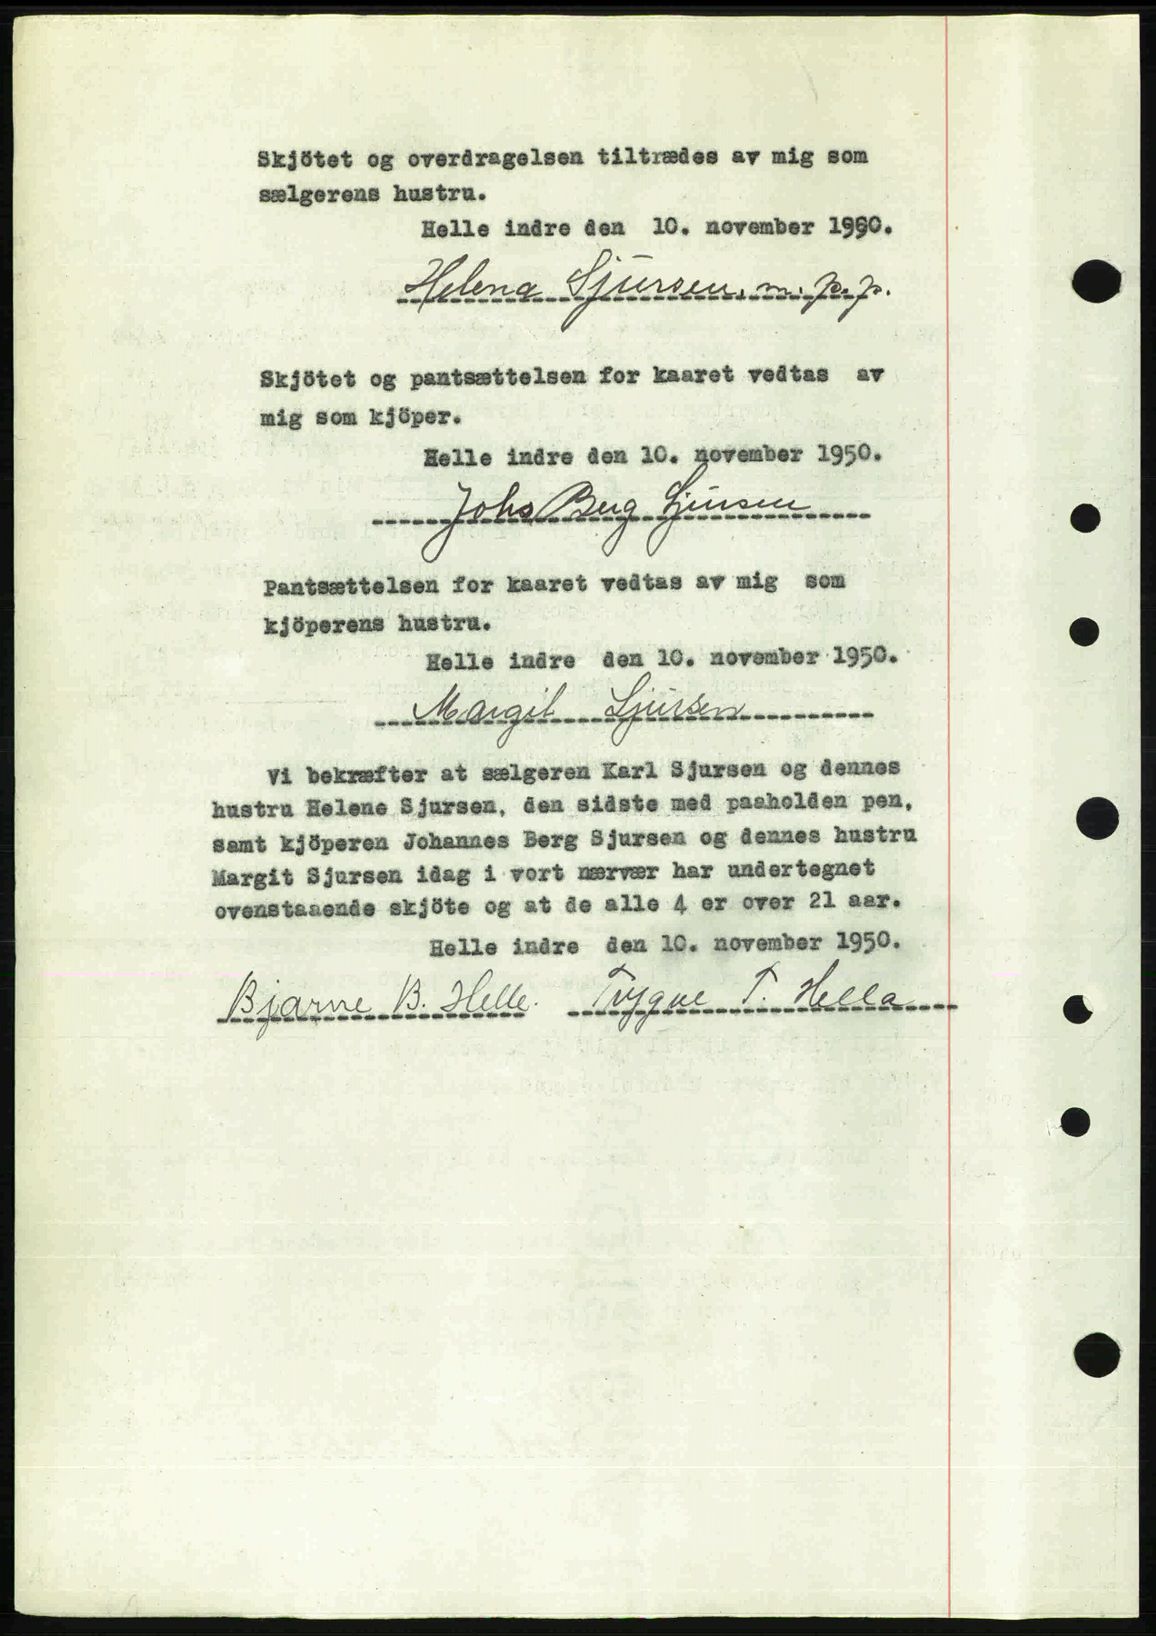 Skjötet og overdragelsen tiltrædes av mig som
sælgerens hustru.
Helle indre den 10. november 1950.
Helena Sjursen. m. p. p.
Skjötet og pantsættelsen for kaaret vedtas av
mig som kjöper.
Helle indre den 10. november 1950.
Johs Berg Sjursen
Pantsættelsen for kaaret vedtas av mig som
kjöperens hustru.
Helle indre den 10. november 1950.
Margit Sjursen
Vi bekræfter at sælgeren Karl Sjursen og dennes
hustru Helene Sjursen, den sidste med paaholden pen,
samt kjöperen Johannes Berg Sjursen og dennes hustru
Margit Sjursen idag i vort nærvær har undertegnet
ovenstaaende skjöte og at de alle 4 er over 21 aar.
Helle indre den 10. november 1950.
Bjarne B. Helle. Trygve T. Hella